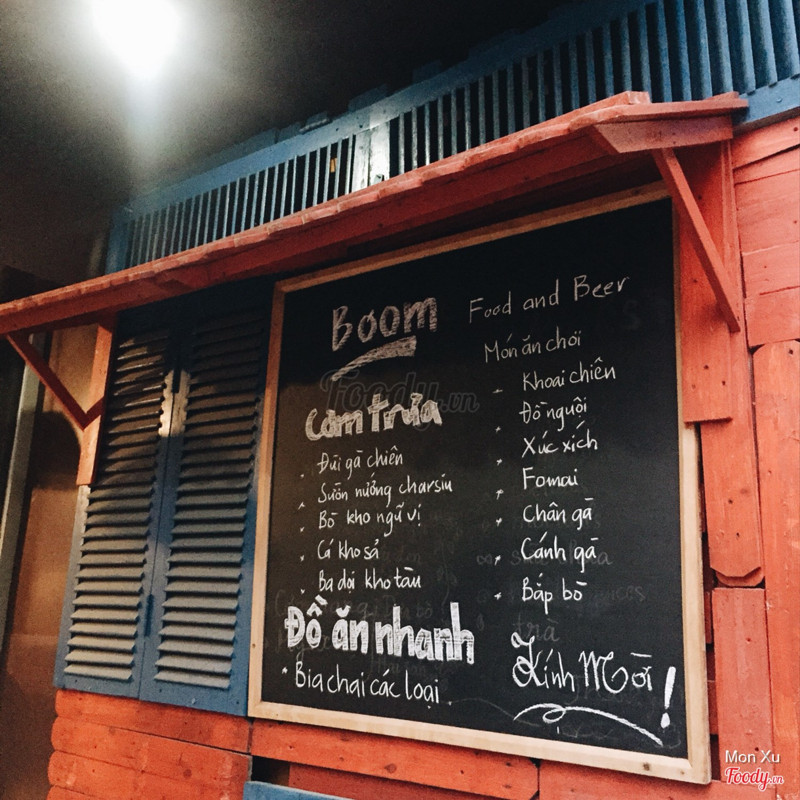 Boom
Food and Beer
Cơm trưa
Đùi gà chiên
Sườn nướng charsiu
Bò kho ngũ vị
Cá kho sả
Ba dọi kho tàu
Đồ ăn nhanh
* Bia chai các loại
Món ăn chơi
- Khoai chiên
Đồ nguội
Xúc xích
Fomai
Chân gà
Cánh gà
Bắp bò
Kính Mời!
Foody.vn
Mon Xu
Foody.vn